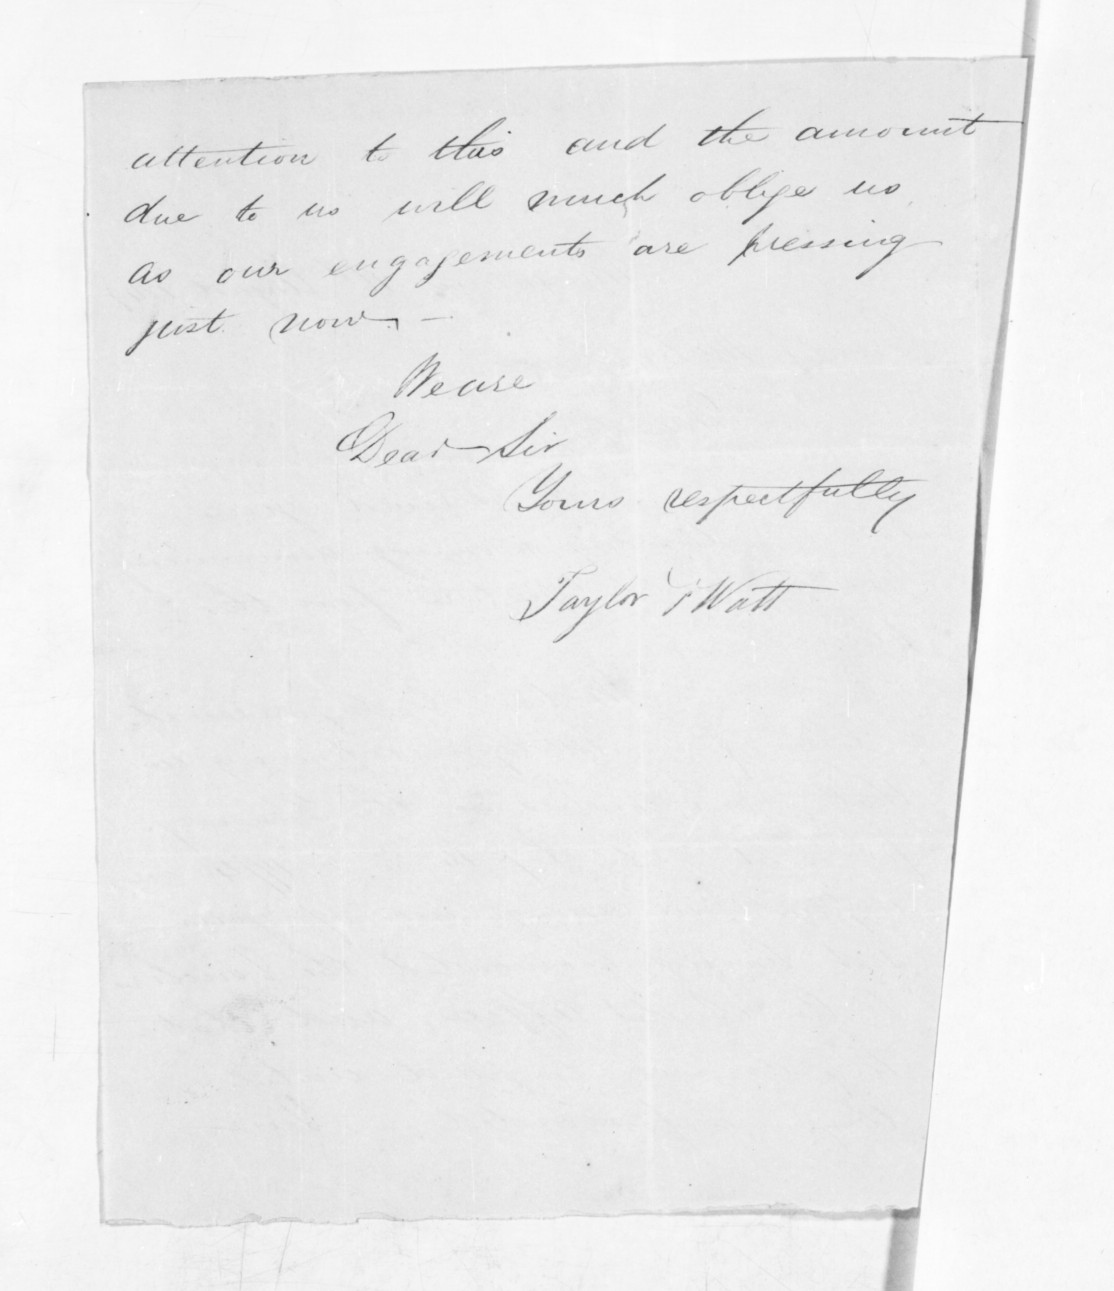 attention to this and the amount
due to us will much oblige us
as our engagements are pressing
just now. —
We are
Dear Sir
Yours respectfully
Taylor & Watt